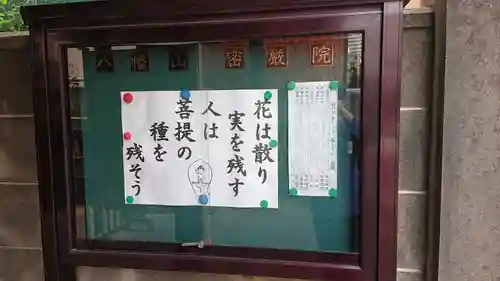 八幡山 密厳院
花は散り
実を残す
人は
菩提の
種を
残そう